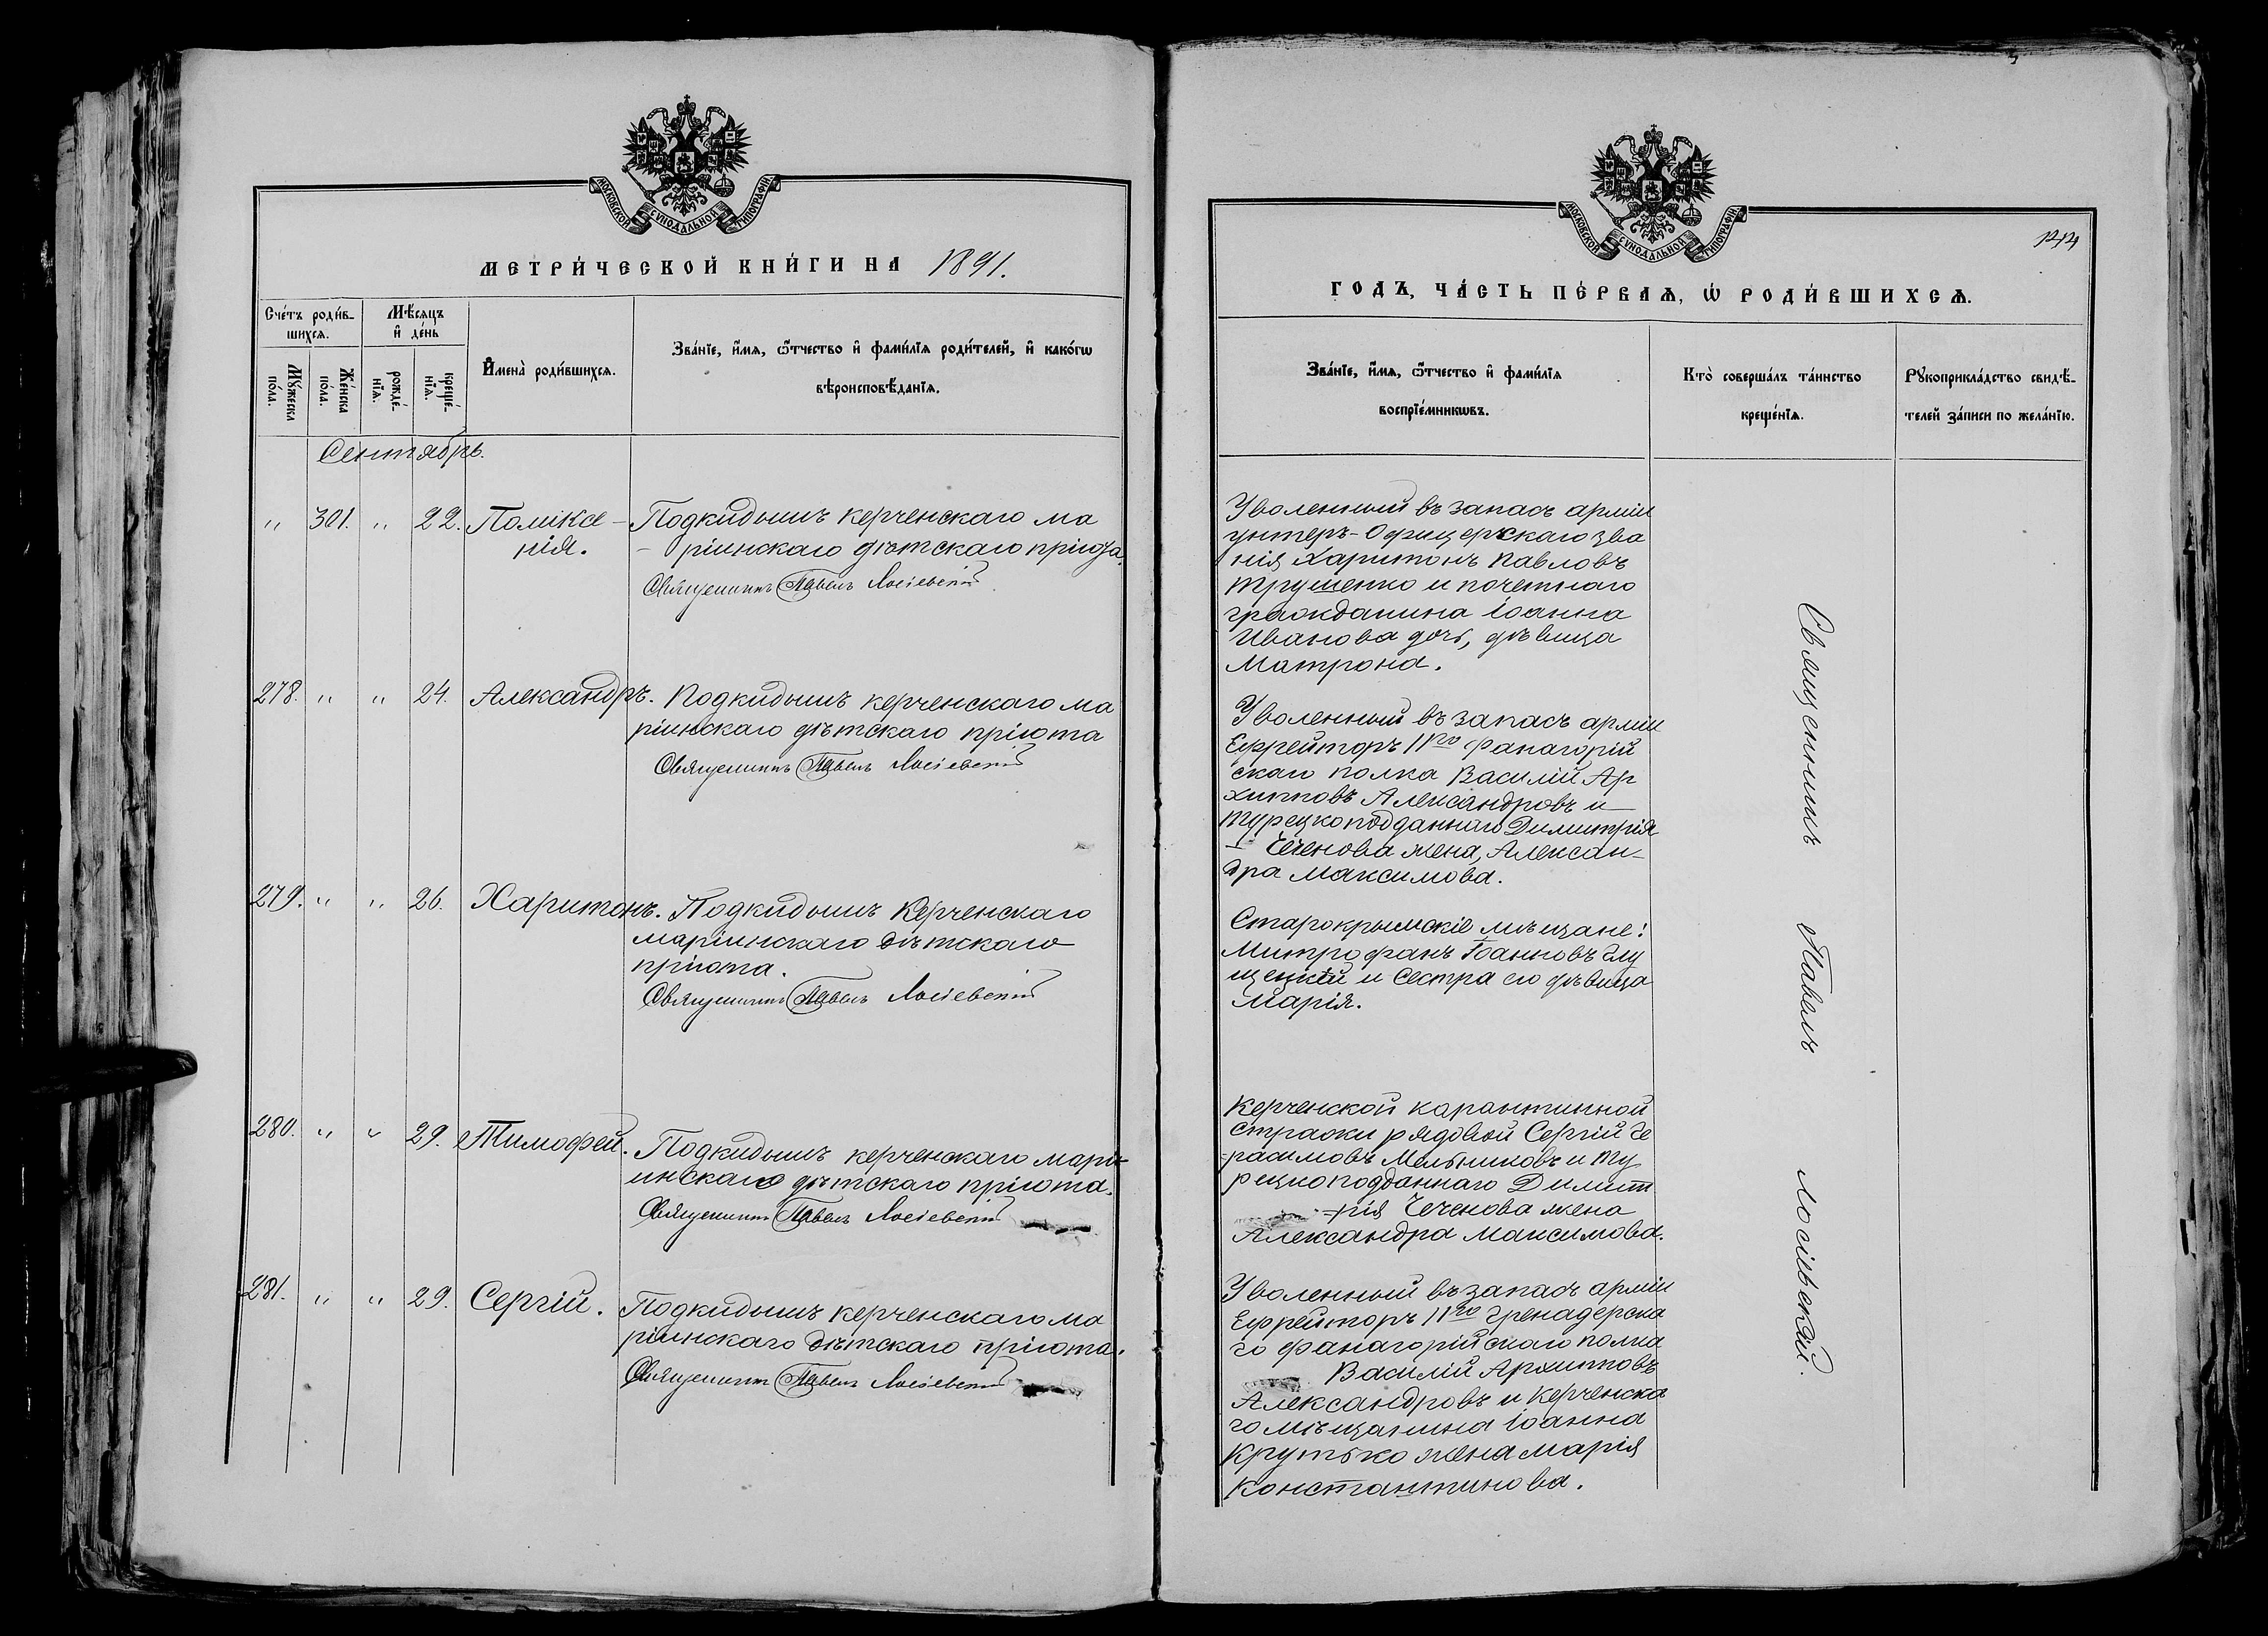 МОСКОВСКОЙ СУНОДАЛЬНОЙ ТИПОГРАФІИ.
МЕТРИ́ЧЕСКОЙ КНИ́ГИ НА 1891.
Сче́тъ роди́в-
шихсѧ.
Мѣ́сѧцъ
и҆ де́нь
Мꙋ́жеска
по́ла.
Же́нска
по́ла.
рожде́-
нїѧ.
креще́-
нїѧ.
И҆мена̀ роди́вшихсѧ.
Зва́нїе, и҆́мѧ, ѻ҆́тчество и҆ фами́лїѧ роди́телей, и҆ како́гѡ
вѣроисповѣ́данїѧ.
Сентябрь.
" 301. " 22. Поликсе- Подкидышъ керченскаго ма
нія. - ріинскаго дѣтскаго пріюта.
Священникъ Павелъ Лосіевскій
278. " " 24. Александръ. Подкидышъ керченскаго ма
ріинскаго дѣтскаго пріюта
Священникъ Павелъ Лосіевскій
279. " " 26. Харитонъ. Подкидышъ Керченскаго
маріинскаго дѣтскаго
пріюта.
Священникъ Павелъ Лосіевскій
280. " " 29. Тимофей. Подкидышъ керченскаго марі-
инскаго дѣтскаго пріюта.
Священникъ Павелъ Лосіевскій
281. " " 29. Сергій. Подкидышъ керченскаго ма
ріинскаго дѣтскаго пріюта.
Священникъ Павелъ Лосіевскій
МОСКОВСКОЙ СУНОДАЛЬНОЙ ТИПОГРАФІИ.
ГОДЪ, ЧА́СТЬ ПЕ́РВАѦ, Ѡ҆ РОДИ́ВШИХСѦ.
Зва́нїе, и҆́мѧ, ѻ҆́тчество и҆ фами́лїѧ
воспрїе́мникѡвъ.
Кто̀ соверша́лъ та́инство
креще́нїѧ.
Рꙋкоприкла́дство свидѣ́-
телей за́писи по жела́нїю.
Уволенный въ запасъ арміи
унтеръ-Офицерскаго зва
нія Харитонъ Павловъ
Трушенко и почетнаго
гражданина Іоанна
Иванова дочь, дѣвица
Матрона.
Уволенный въ запасъ арміи
Ефрейторъ 11го Фанагорій
скаго полка Василій Ар
хиповъ Александровъ и
турецкоподданнаго Димитрія
Чеченова жена, Алексан-
дра Максимова.
Старокрымскіе мѣщане:
Митрофанъ Іоанновъ Глу
щецкій и сестра его дѣвица
Марія.
Керченской карантинной
стражи рядовой Сергій Ге
расимовъ Мельниковъ и ту
рецкоподданнаго Димит
рія Чеченова жена
Александра Максимова.
Уволенный въ запасъ арміи
Ефрейторъ 11го Гренадерска
го Фанагорійскаго полка
Василій Архиповъ
Александровъ и Керченска
го мѣщанина Іоанна
Крутько жена Марія
Константинова.
Священникъ Павелъ Лосіевскій.